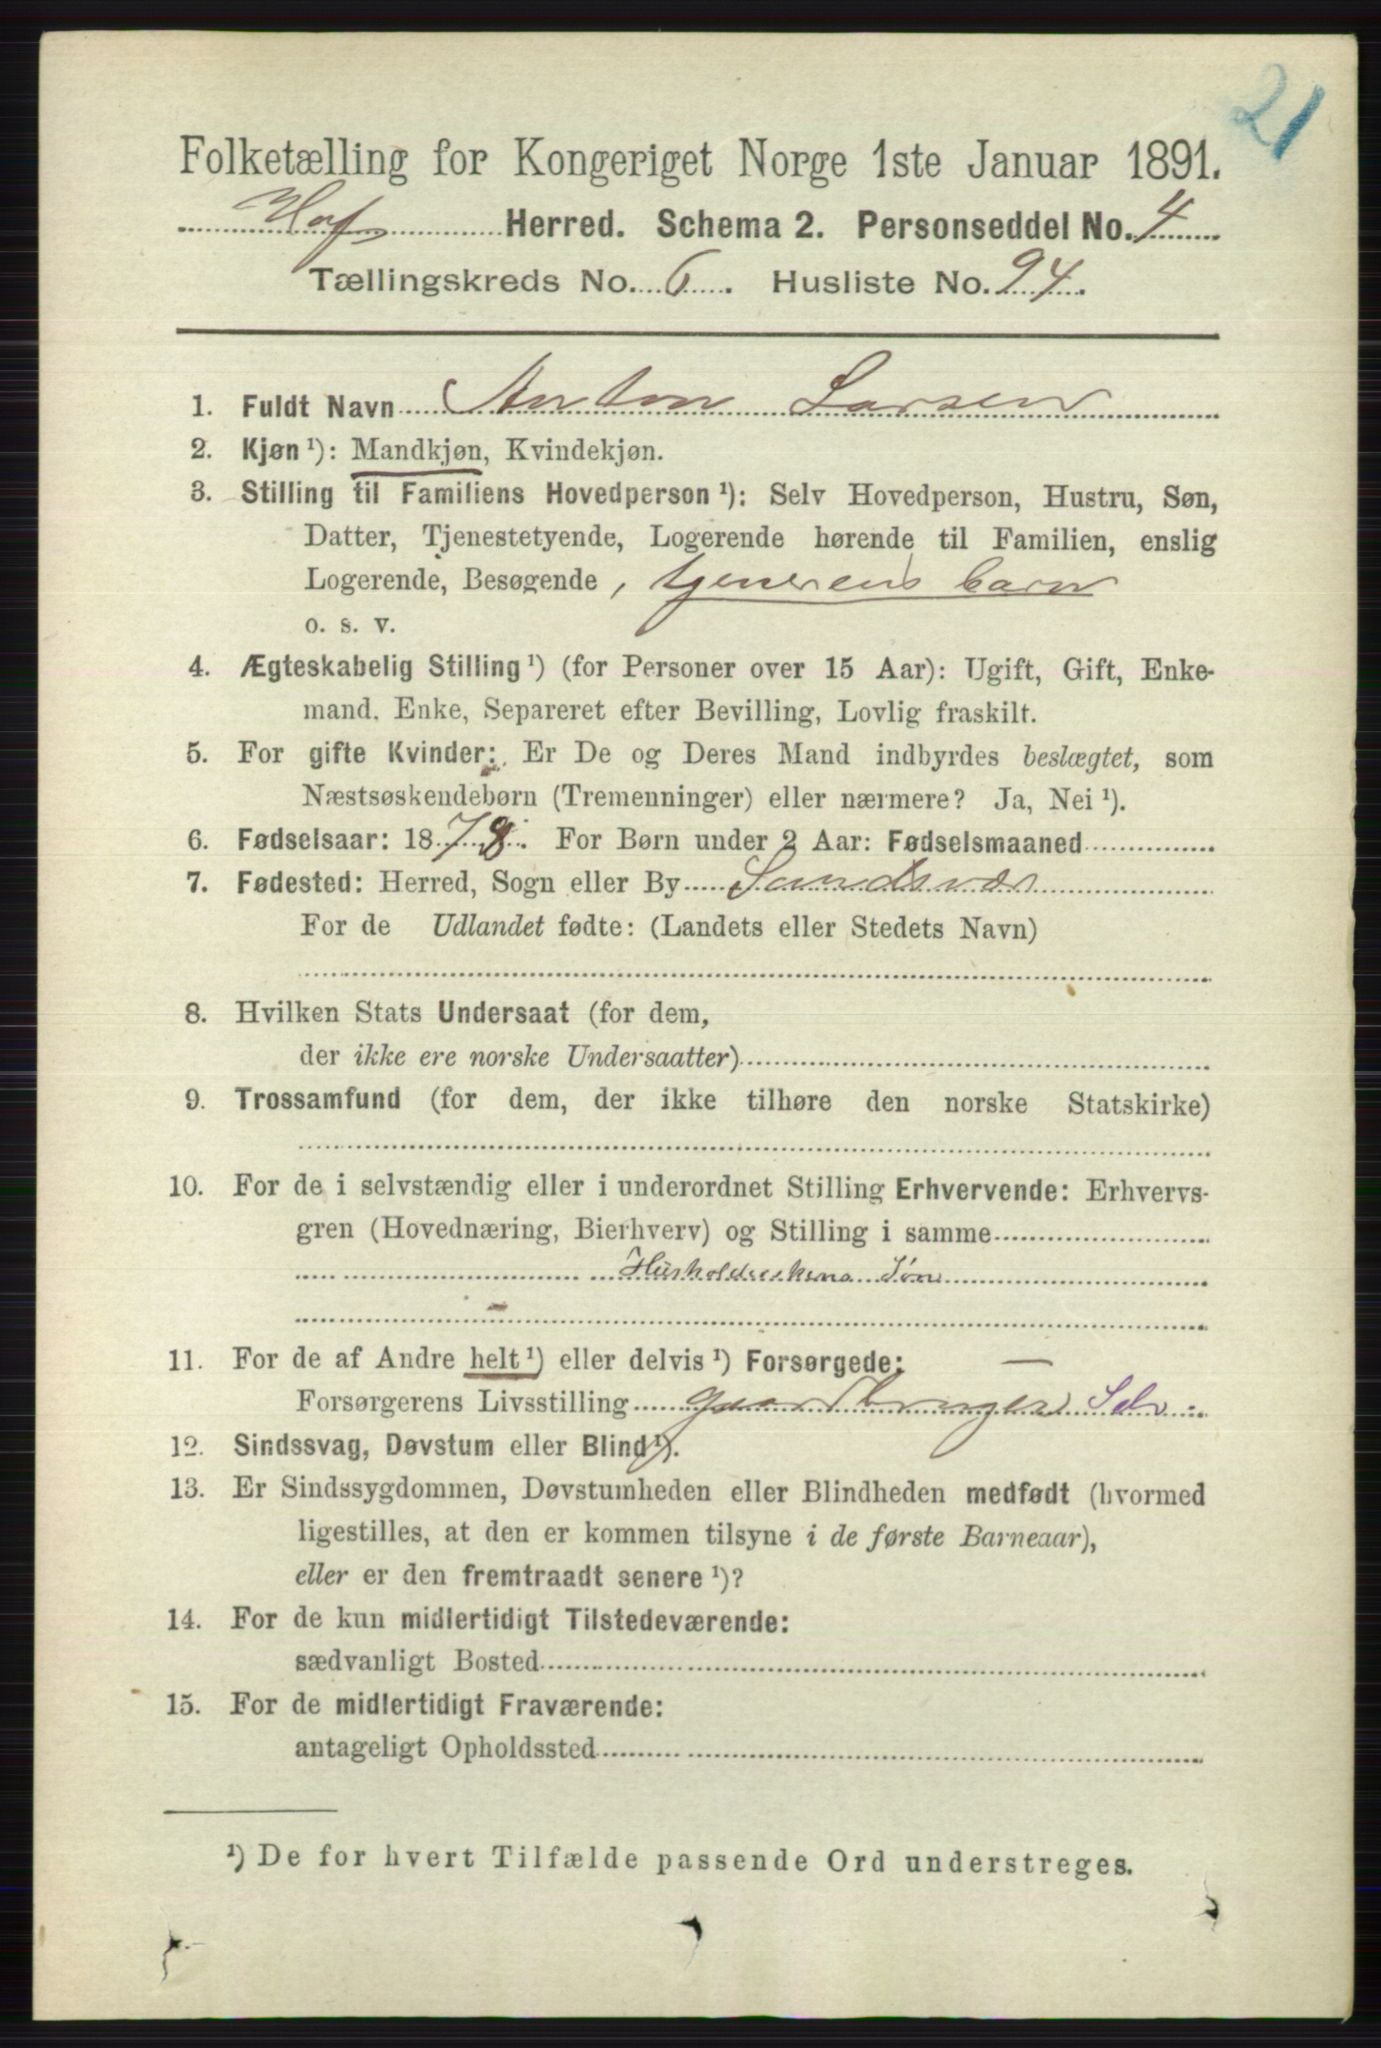 21
Folketælling for Kongeriget Norge 1ste Januar 1891.
Hof Herred. Schema 2. Personseddel No. 4
Tællingskreds No. 6. Husliste No. 94.
1. Fuldt Navn Anton Larsen
2. Kjøn ¹): Mandkjøn, Kvindekjøn.
3. Stilling til Familiens Hovedperson ¹): Selv Hovedperson, Hustru, Søn,
Datter, Tjenestetyende, Logerende hørende til Familien, enslig
Logerende, Besøgende, tjenerens barn
o. s. v.
4. Ægteskabelig Stilling ¹) (for Personer over 15 Aar): Ugift, Gift, Enke-
mand, Enke, Separeret efter Bevilling, Lovlig fraskilt.
5. For gifte Kvinder: Er De og Deres Mand indbyrdes beslægtet, som
Næstsøskendebørn (Tremenninger) eller nærmere? Ja, Nei ¹).
6. Fødselsaar: 1878. For Børn under 2 Aar: Fødselsmaaned
7. Fødested: Herred, Sogn eller By Sandsvær
For de Udlandet fødte: (Landets eller Stedets Navn)
8. Hvilken Stats Undersaat (for dem,
der ikke ere norske Undersaatter)
9. Trossamfund (for dem, der ikke tilhøre den norske Statskirke)
10. For de i selvstændig eller i underordnet Stilling Erhvervende: Erhvervs-
gren (Hovednæring, Bierhverv) og Stilling i samme
Husholderskens Søn
11. For de af Andre helt ¹) eller delvis ¹) Forsørgede: —
Forsørgerens Livsstilling gaardbruger Selv
12. Sindssvag, Døvstum eller Blind ¹).
13. Er Sindssygdommen, Døvstumheden eller Blindheden medfødt (hvormed
ligestilles, at den er kommen tilsyne i de første Barneaar),
eller er den fremtraadt senere ¹)?
14. For de kun midlertidigt Tilstedeværende:
sædvanligt Bosted
15. For de midlertidigt Fraværende:
antageligt Opholdssted
¹) De for hvert Tilfælde passende Ord understreges.